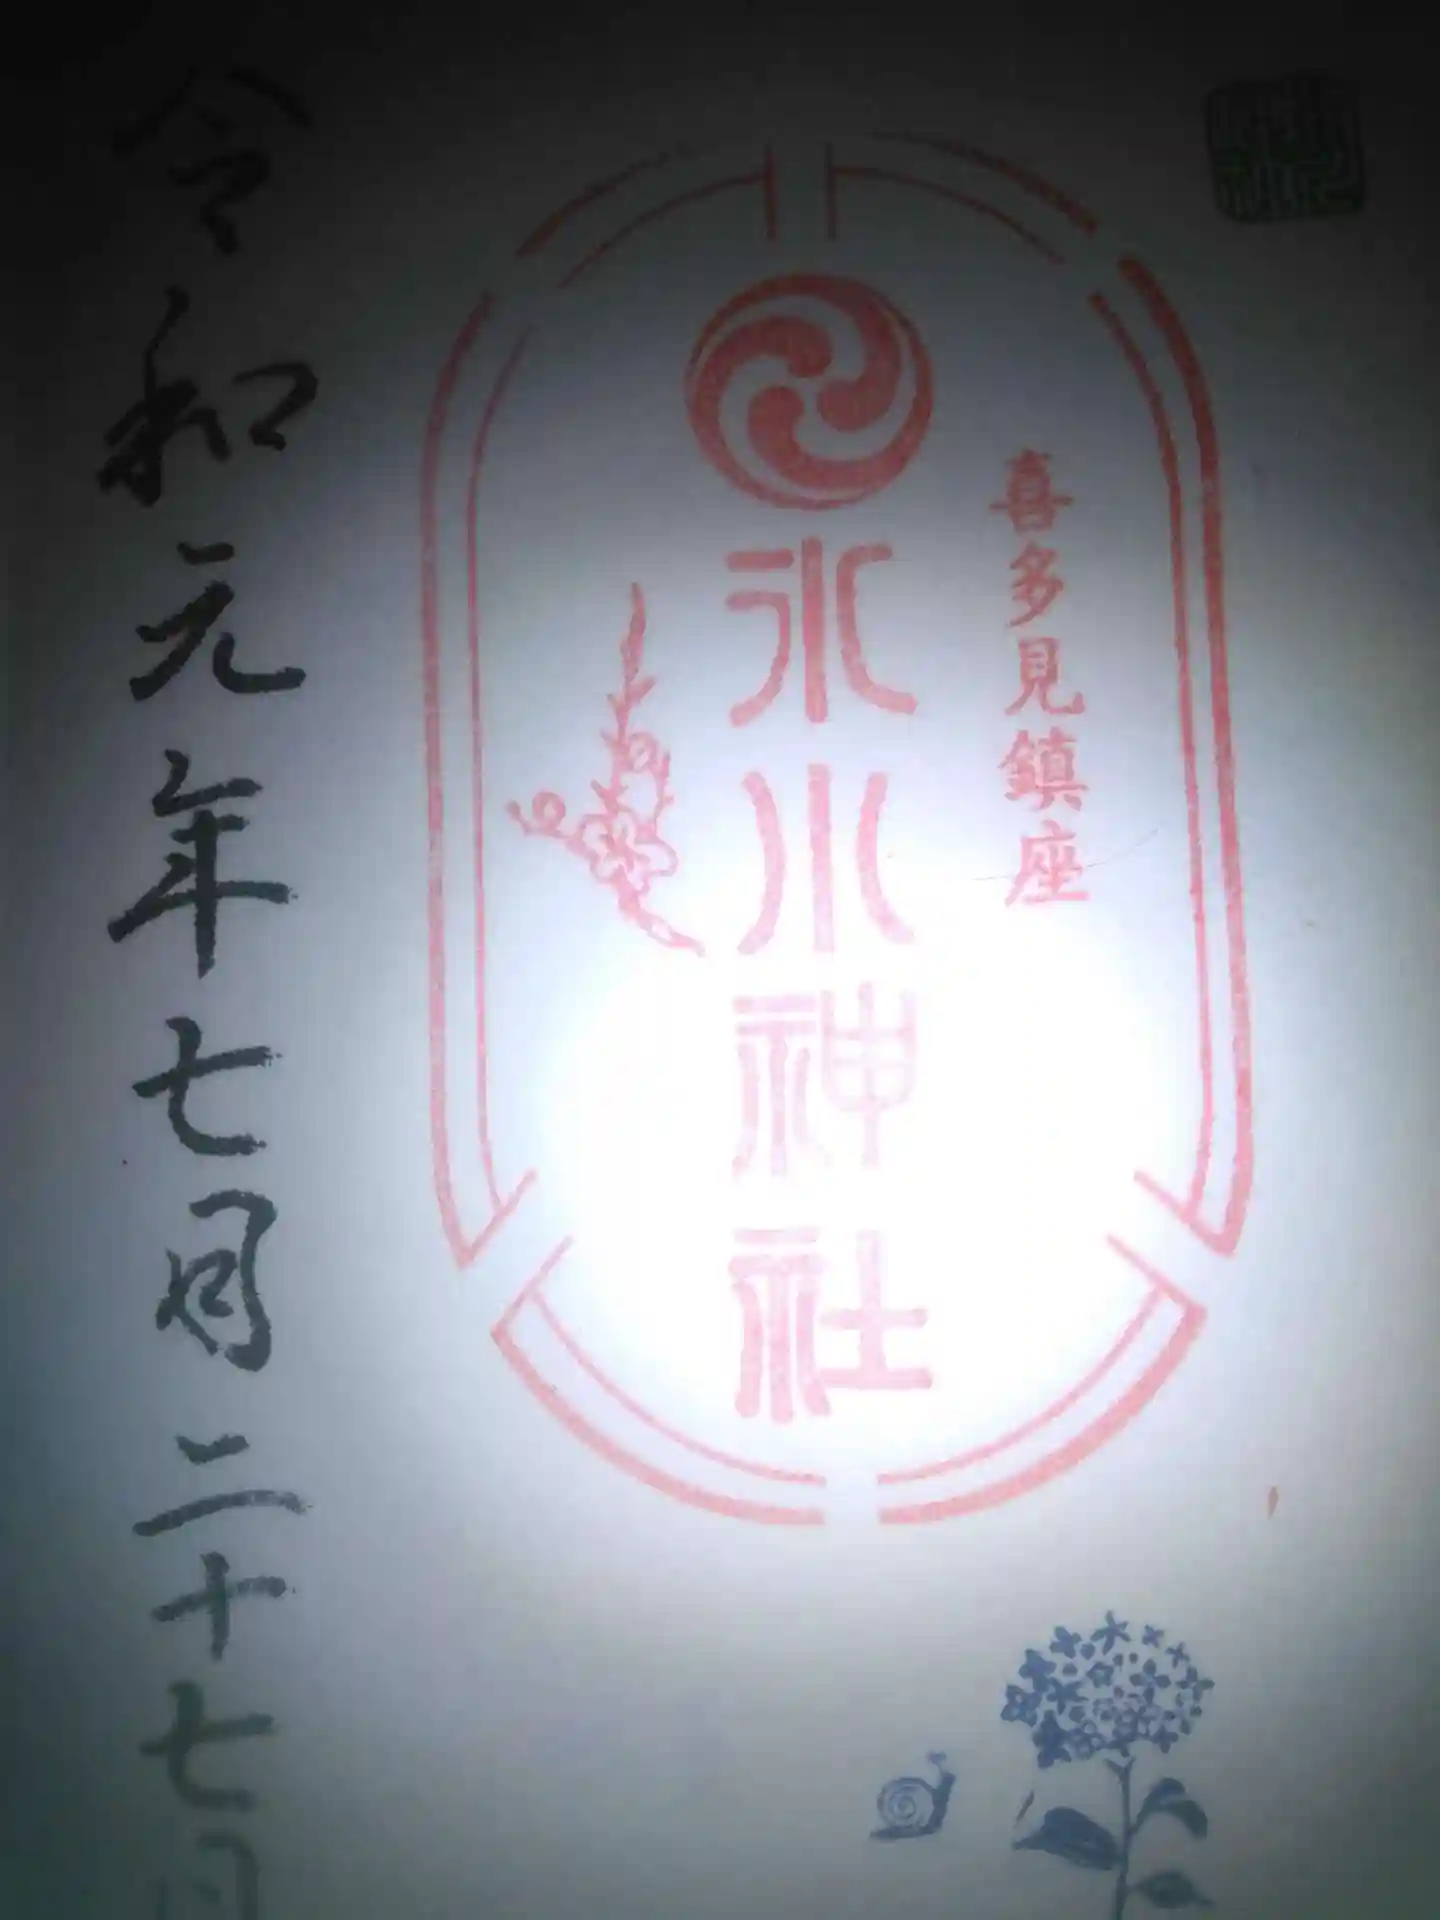 喜多見鎮座
氷川神社
令和元年七月二十七日